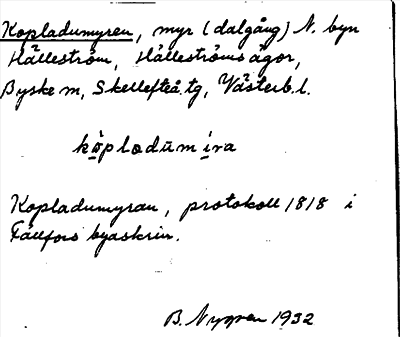 Kopladumyren, myr (dalgång) N. byn
Hälleström, Hälleströms ägor,
Byske m, Skellefteå tg, Västerb. l.
köpladūmira
Kopladumyran, protokoll 1818 i
Fällfors byaskrin.
B. Nygren 1932